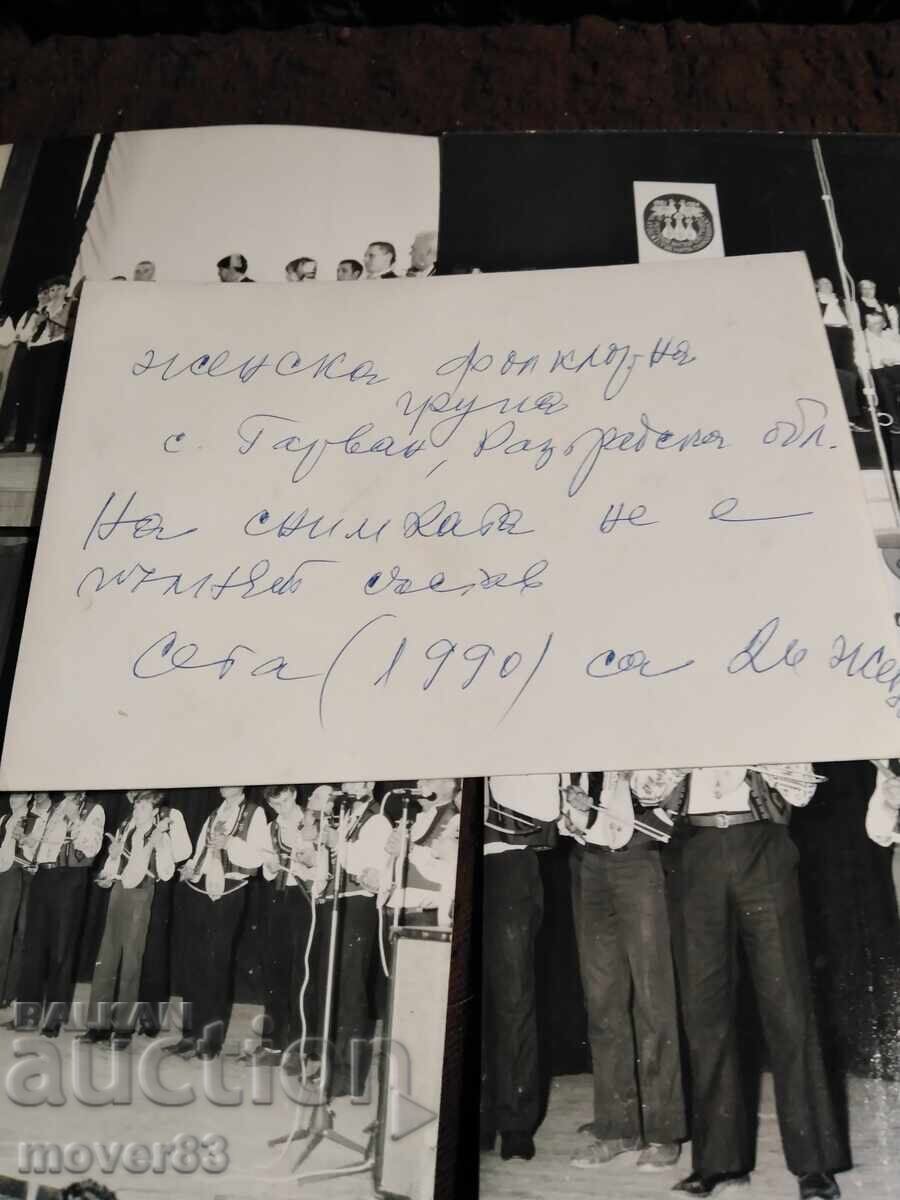 женска фолклорна
група
с. Гарван, Разградска обл.
На снимката не е
пълният състав
Сега (1990) са 26 жени
BALKAN
auction
mover83